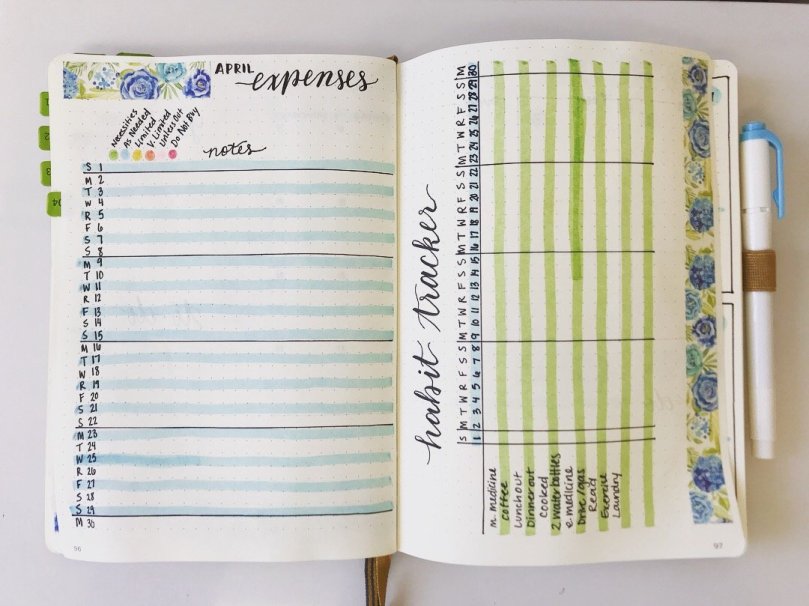 APRIL expenses
Necessities
As Needed
Limited
V. Limited
Unless Out
Do Not Buy
notes
S 1
M 2
T 3
W 4
R 5
F 6
S 7
S 8
M 9
T 10
W 11
R 12
F 13
S 14
S 15
M 16
T 17
W 18
R 19
F 20
S 21
S 22
M 23
T 24
W 25
R 26
F 27
S 28
S 29
M 30
96
2
3
04
habit tracker
S M T W R F S S M T W R F S S M T W R F S S M T W R F S S M
1 2 3 4 5 6 7 8 9 10 11 12 13 14 15 16 17 18 19 20 21 22 23 24 25 26 27 28 29 30
m. medicine
coffee
Lunch out
Dinner out
Cooked
2 Waterbottles
e. medicine
Read
Exercise
Laundry
97